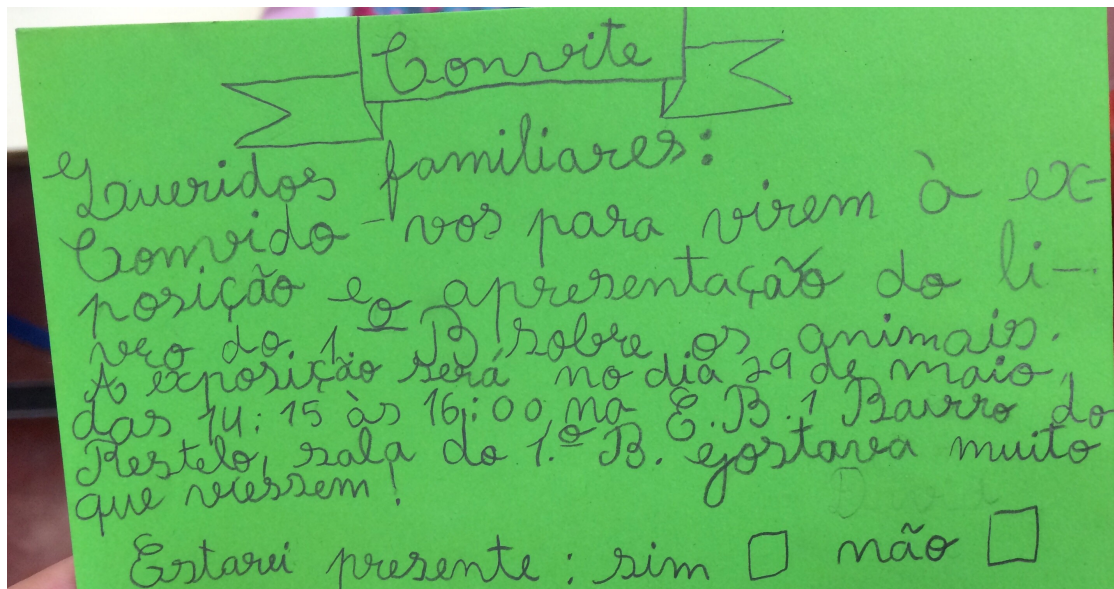 Convite
Queridos familiares:
Convido-vos para virem à ex-
posição e apresentação do li-
vro do 1.º B sobre os animais.
A exposição será no dia 29 de maio,
das 14:15 às 16:00 na E.B.1 Bairro do
Restelo, sala do 1.º B. gostava muito
que viessem!
Estarei presente: sim não